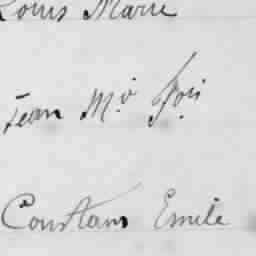 Louis Marie
Jean M.ie fçois
Constans Emile